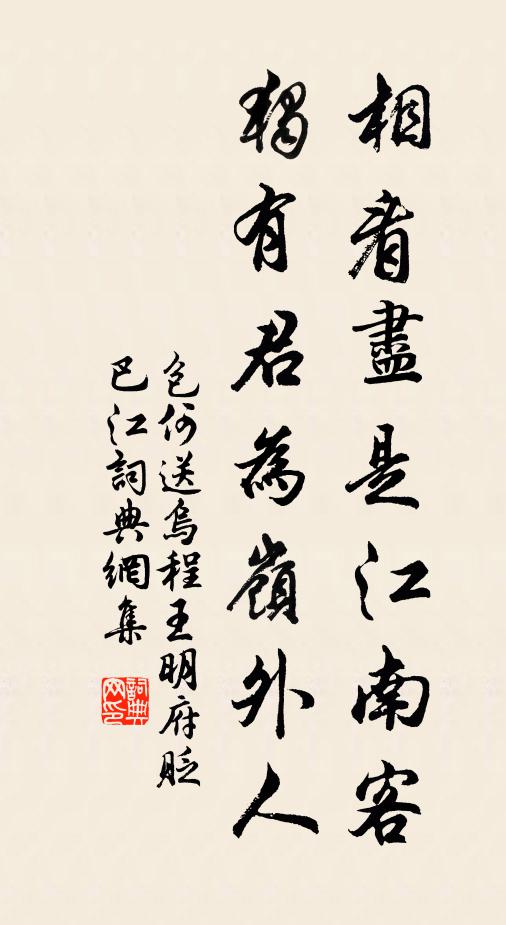 相看盡是江南客
獨有君為嶺外人
包何送烏程王明府貶
巴江詞典網集
詞典网印